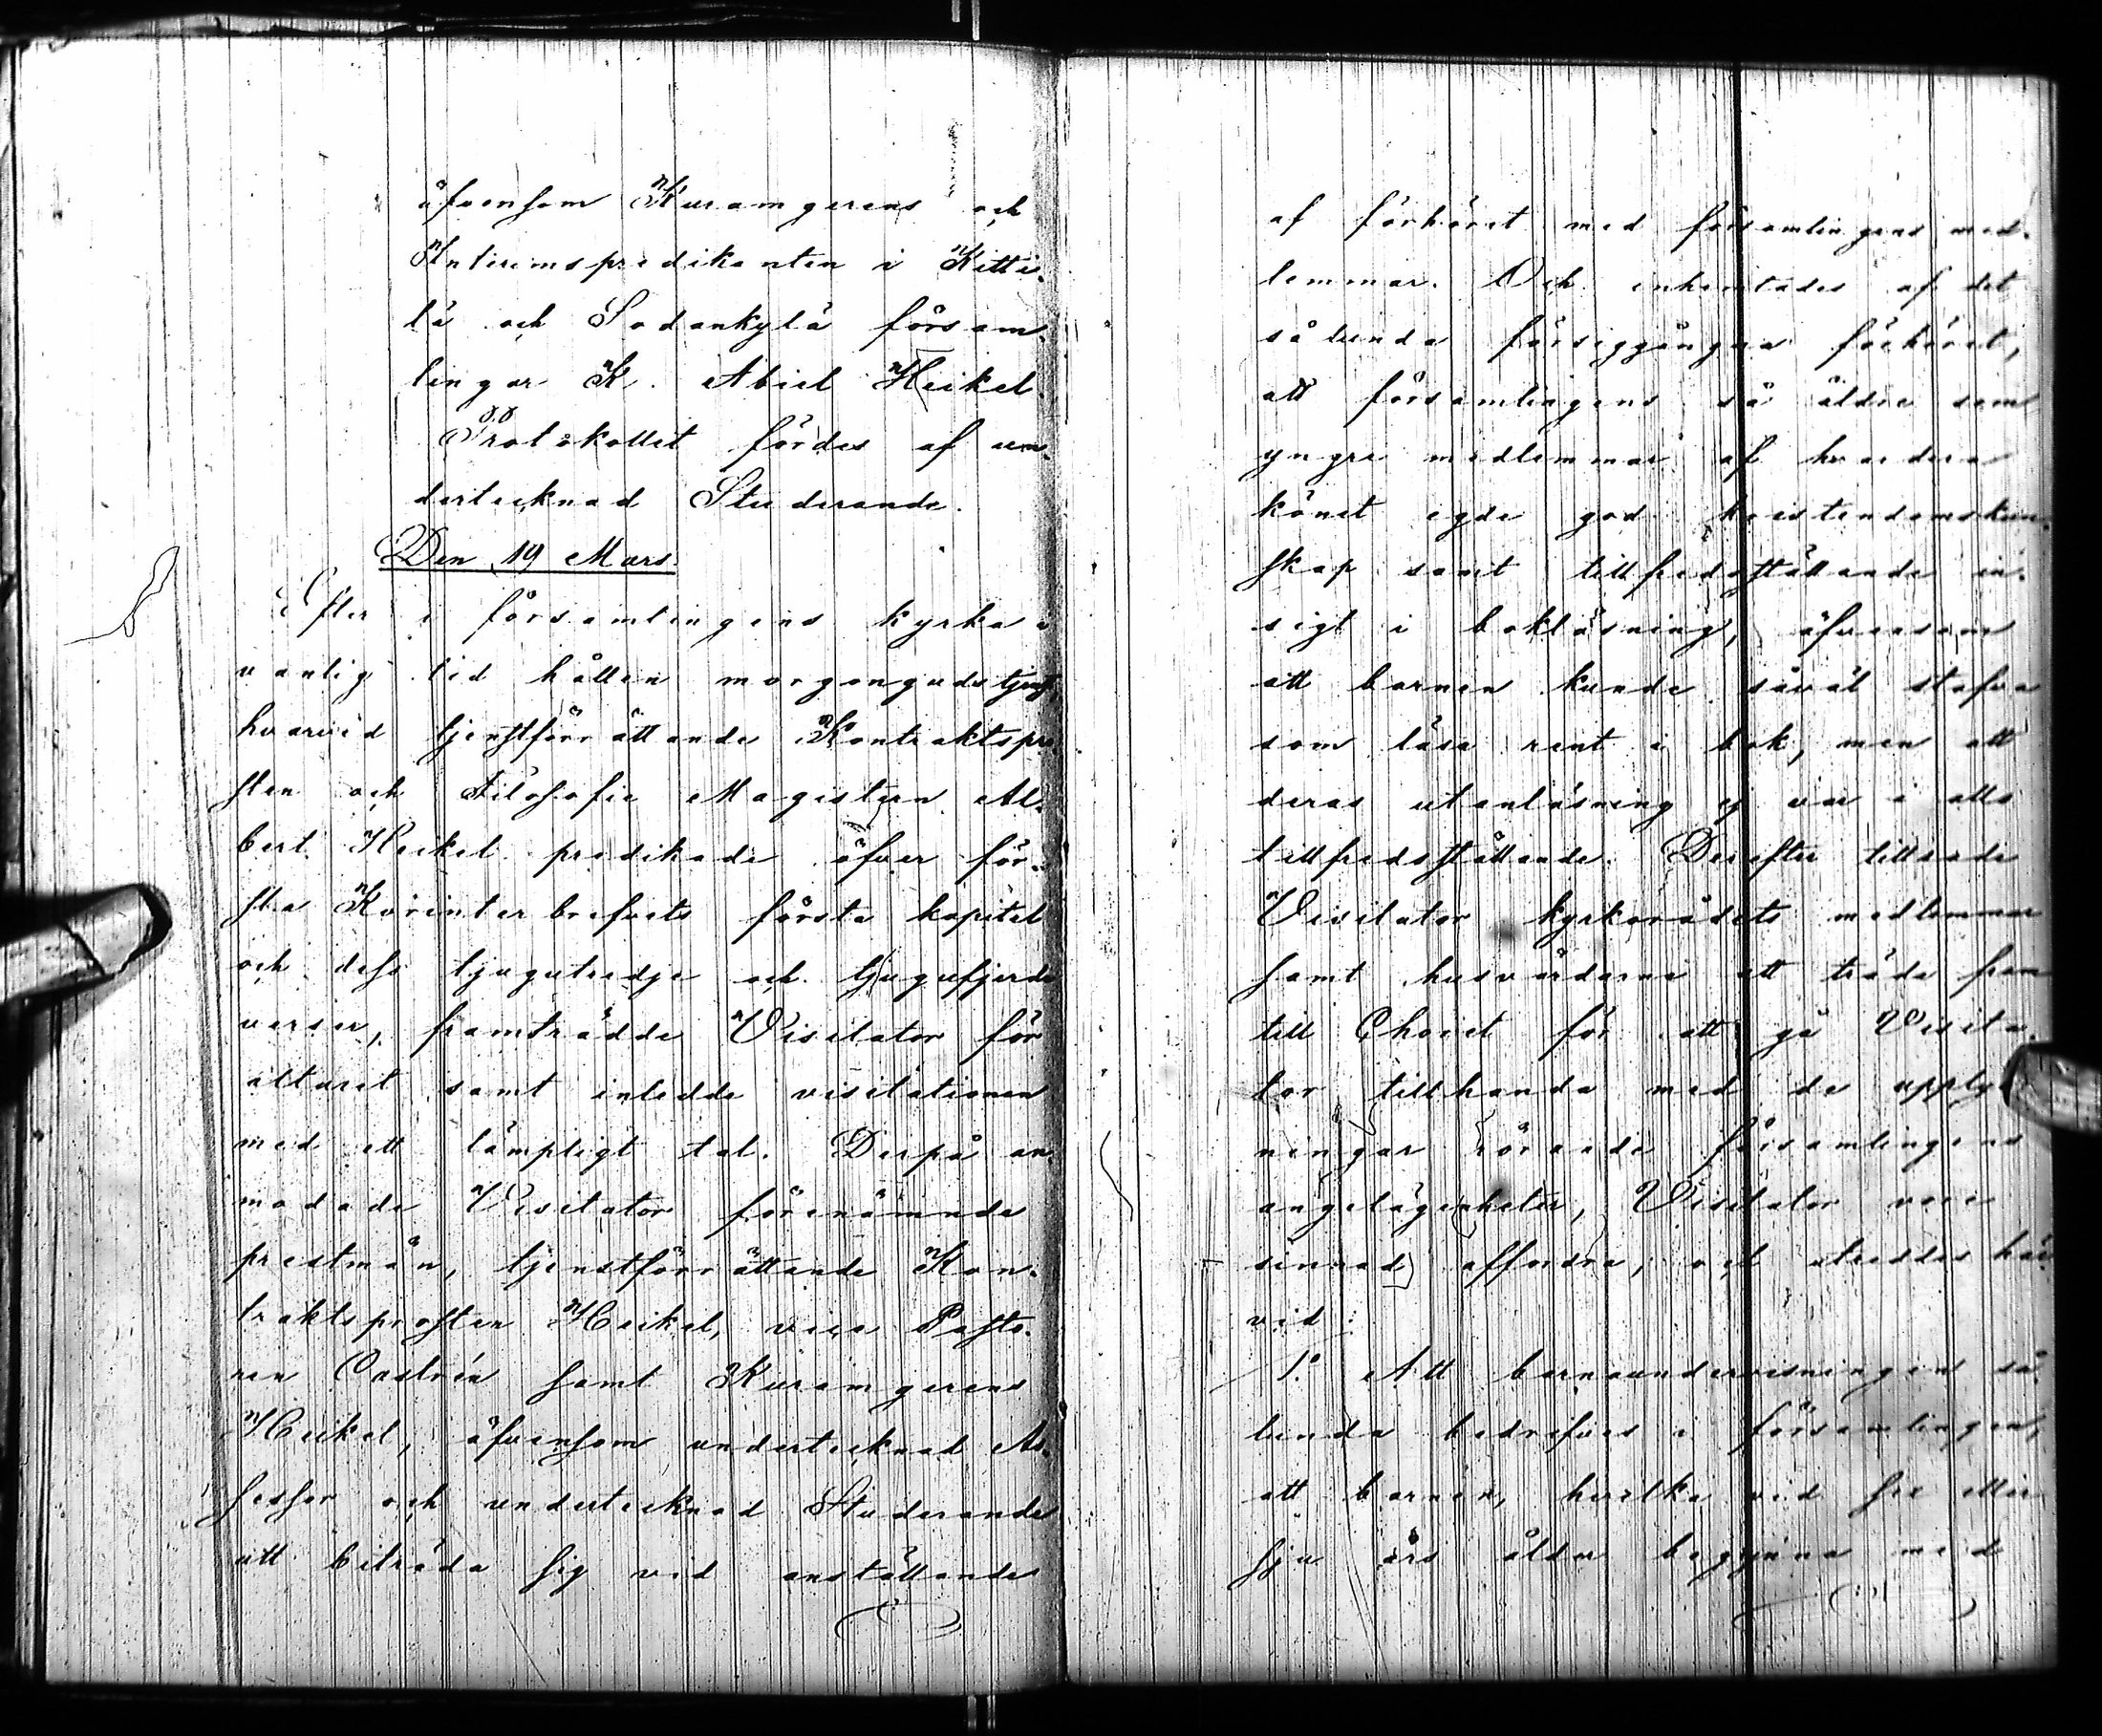 äfvensom Kuramgerens och
Interimspredikanten i Kitti-
lä och Sodankylä försam-
lingar K. Abiel Heikel.
Protokollet fördes af un-
dertecknad Studerande.
Den 19 Mars.
Efter i församlingens kyrka å
vanlig tid hållen morgongudstjenst,
hvarvid tjenstförrättande Kontraktspro-
sten och Filosofie Magistern Al-
bert Heikel predikade öfver för-
sta Korinter brefvets första kapitel
och dess tjugutredje och tjugufjerde
verser, framträdde Visitator för
altaret samt inledde visitationen
med ett lämpligt tal. Derpå an-
modade Visitator förenämnde
prestmän, tjenstförrättande Kon-
traktsprosten Heikel, vice Pasto-
ren Castrén samt Kuramgerens
Heikel, äfvensom undertecknad As-
sessor och undertecknad Studerande
att biträda sig vid anställandet
af förhöret med församlingens med-
lemmar. Och inhemtades af det
sålunda försiggångna förhöret,
att församlingens så äldre som
yngre medlemmar af hvardera
könet egde god kristendomskun-
skap samt tillfredsställande in-
sigt i bokläsning, äfvensom
att barnen kunde såväl stafva
som läsa rent i bok, men att
deras utanläsning ej var i allo
tillfredsställande. Derefter tillsade
Visitator kyrkorådets medlemmar
samt husvärdarne att träda fram
till Choret för att gå Visita-
tor tillhanda med de upplys-
ningar rörande församlingens
angelägenheter, Visitator vore
sinnad affordra, och utreddes här-
vid:
1:o Att barnaundervisningen så-
lunda bedrefves i församlingen,
att barnen, hvilka vid sex eller
sju års ålder begynna med